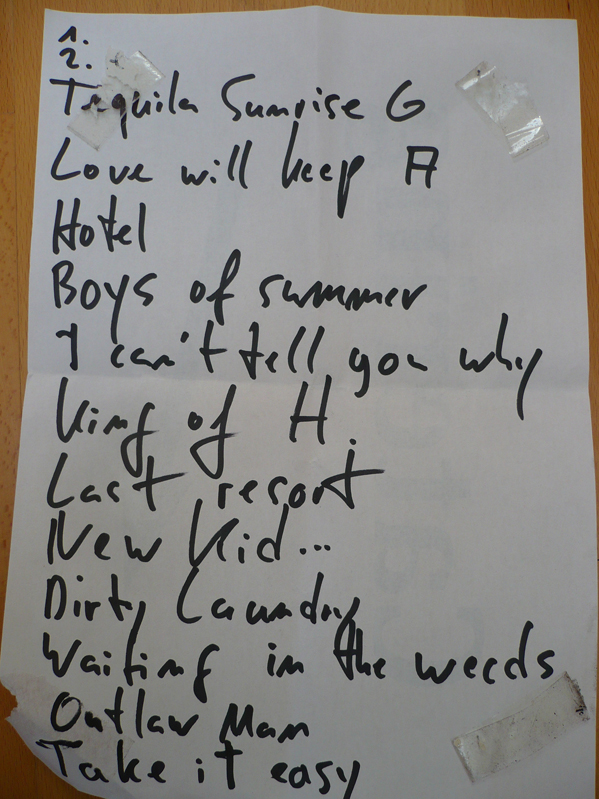 1.
2.
Tequila Sunrise G
Love will keep A
Hotel
Boys of summer
I can't tell you why
King of H.
Last resort
New Kid...
Dirty Laundry
Waiting in the weeds
Outlaw Man
Take it easy